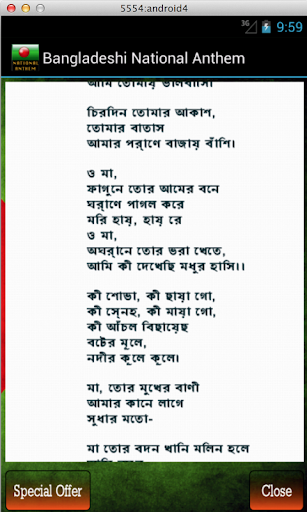 5554:android4
36
9:59
NATIONAL
ANTHEM
Bangladeshi National Anthem
আমি তোমায় ভালবাসি।
চিরদিন তোমার আকাশ,
তোমার বাতাস
আমার পরাণে বাজায় বাঁশি।
ও মা,
ফাগুনে তোর আমের বনে
ঘরাণে পাগল করে
মরি হায়, হায় রে
ও মা,
অঘরানে তোর ভরা খেতে,
আমি কী দেখেছি মধুর হাসি।।
কী শোভা, কী ছায়া গো,
কী সেনহ, কী মায়া গো,
কী আঁচল বিছায়েছ
বটের মূলে,
নদীর কূলে কূলে।
মা, তোর মুখের বাণী
আমার কানে লাগে
সুধার মতো-
মা তোর বদন খানি মলিন হলে
Special Offer
Close